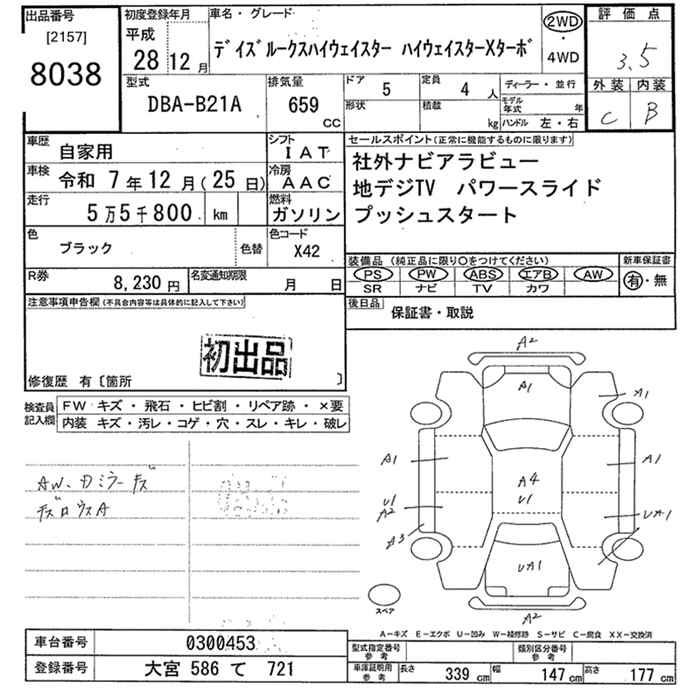 出品番号 初度登録年月 車名・グレード 評価点
[2157] 平成
8038 28 12月 デイズルークスハイウェイスター ハイウェイスターXターボ 2WD・4WD 3.5
型式 排気量 ドア 定員 ディーラー・並行 外装 内装
DBA-B21A 659 CC 5 4 人 C B
形状 積載 kg モデル年式 年 ハンドル 左・右
車歴 自家用 シフト IAT セールスポイント(正常に機能するものに限ります)
車検 令和 7年12月(25日) 冷房 AAC 社外ナビアラビュー
走行 5万5千800 km 燃料 ガソリン 地デジTV パワースライド
プッシュスタート
色 ブラック 色替 色コード X42
装備品 (純正品に限り○をつけてください) 新車保証書
PS PW ABS エアB AW 有・無
SR ナビ TV カワ
R券 8,230円 名変通知期限 月 日
後日品 保証書・取説
注意事項申告欄(不具合内容等は具体的に記入して下さい)
初出品
修復歴 有〔箇所 〕
検査員記入欄 FW キズ・飛石・ヒビ割・リペア跡・×要
内装 キズ・汚レ・コゲ・穴・スレ・キレ・破レ
A2
A1
A1
A1 A1
A4
U1
U1
A2 UA1
A3
UA1
A2
スペア
A-キズ E-エクボ U-凹み W-補修跡 S-サビ C-腐食 XX-交換済
車台番号 0300453
登録番号 大宮 586 て 721
型式指定番号参考 類別区分番号参考
車庫証明用参考 長さ 339 cm 幅 147 cm 高さ 177 cm